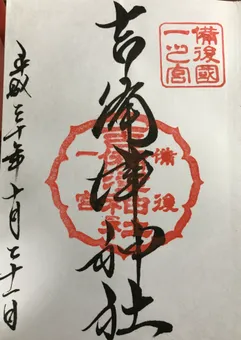 備後國
一之宮
吉備津神社
備後
一宮
平成三十年十月二十一日